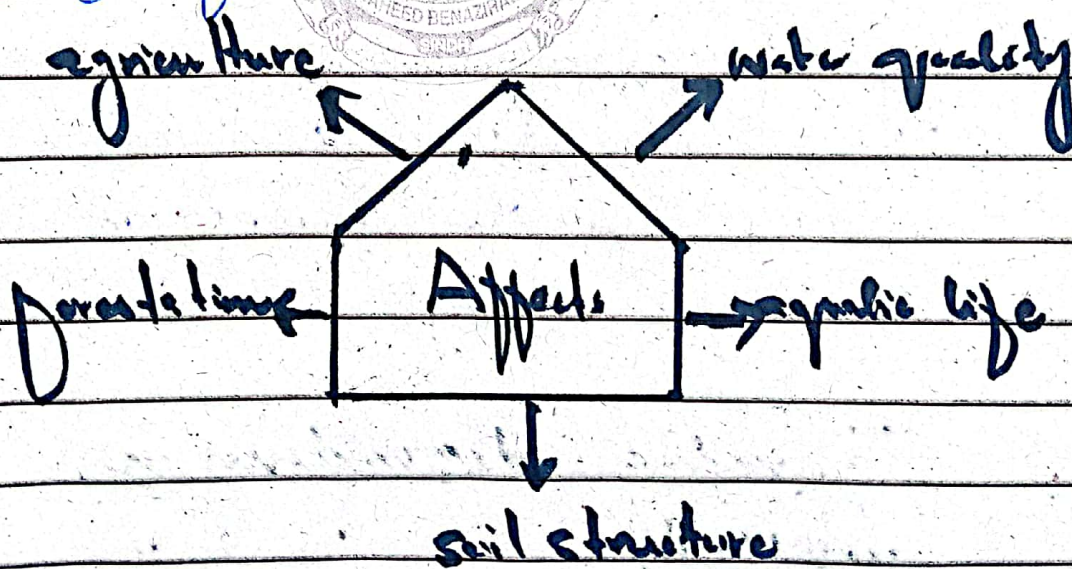 SHAHEED BENAZIR
agriculture
water quality
Affects
aquatic life
soil structure